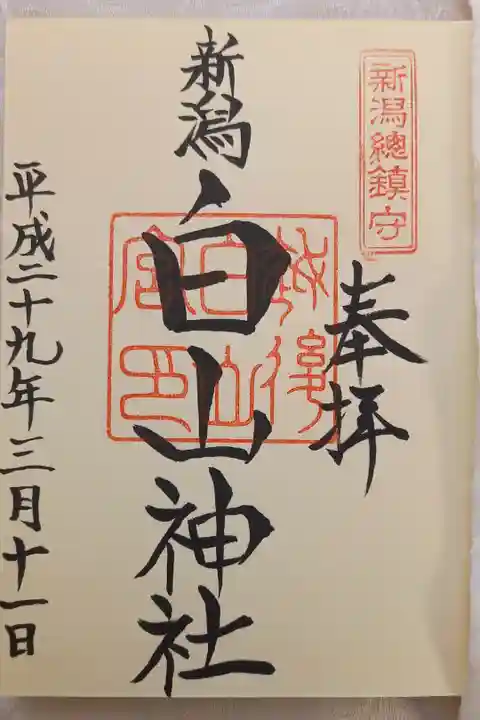 新潟總鎮守
奉拝
越後
白山
宮印
新潟 白山神社
平成二十九年三月十一日